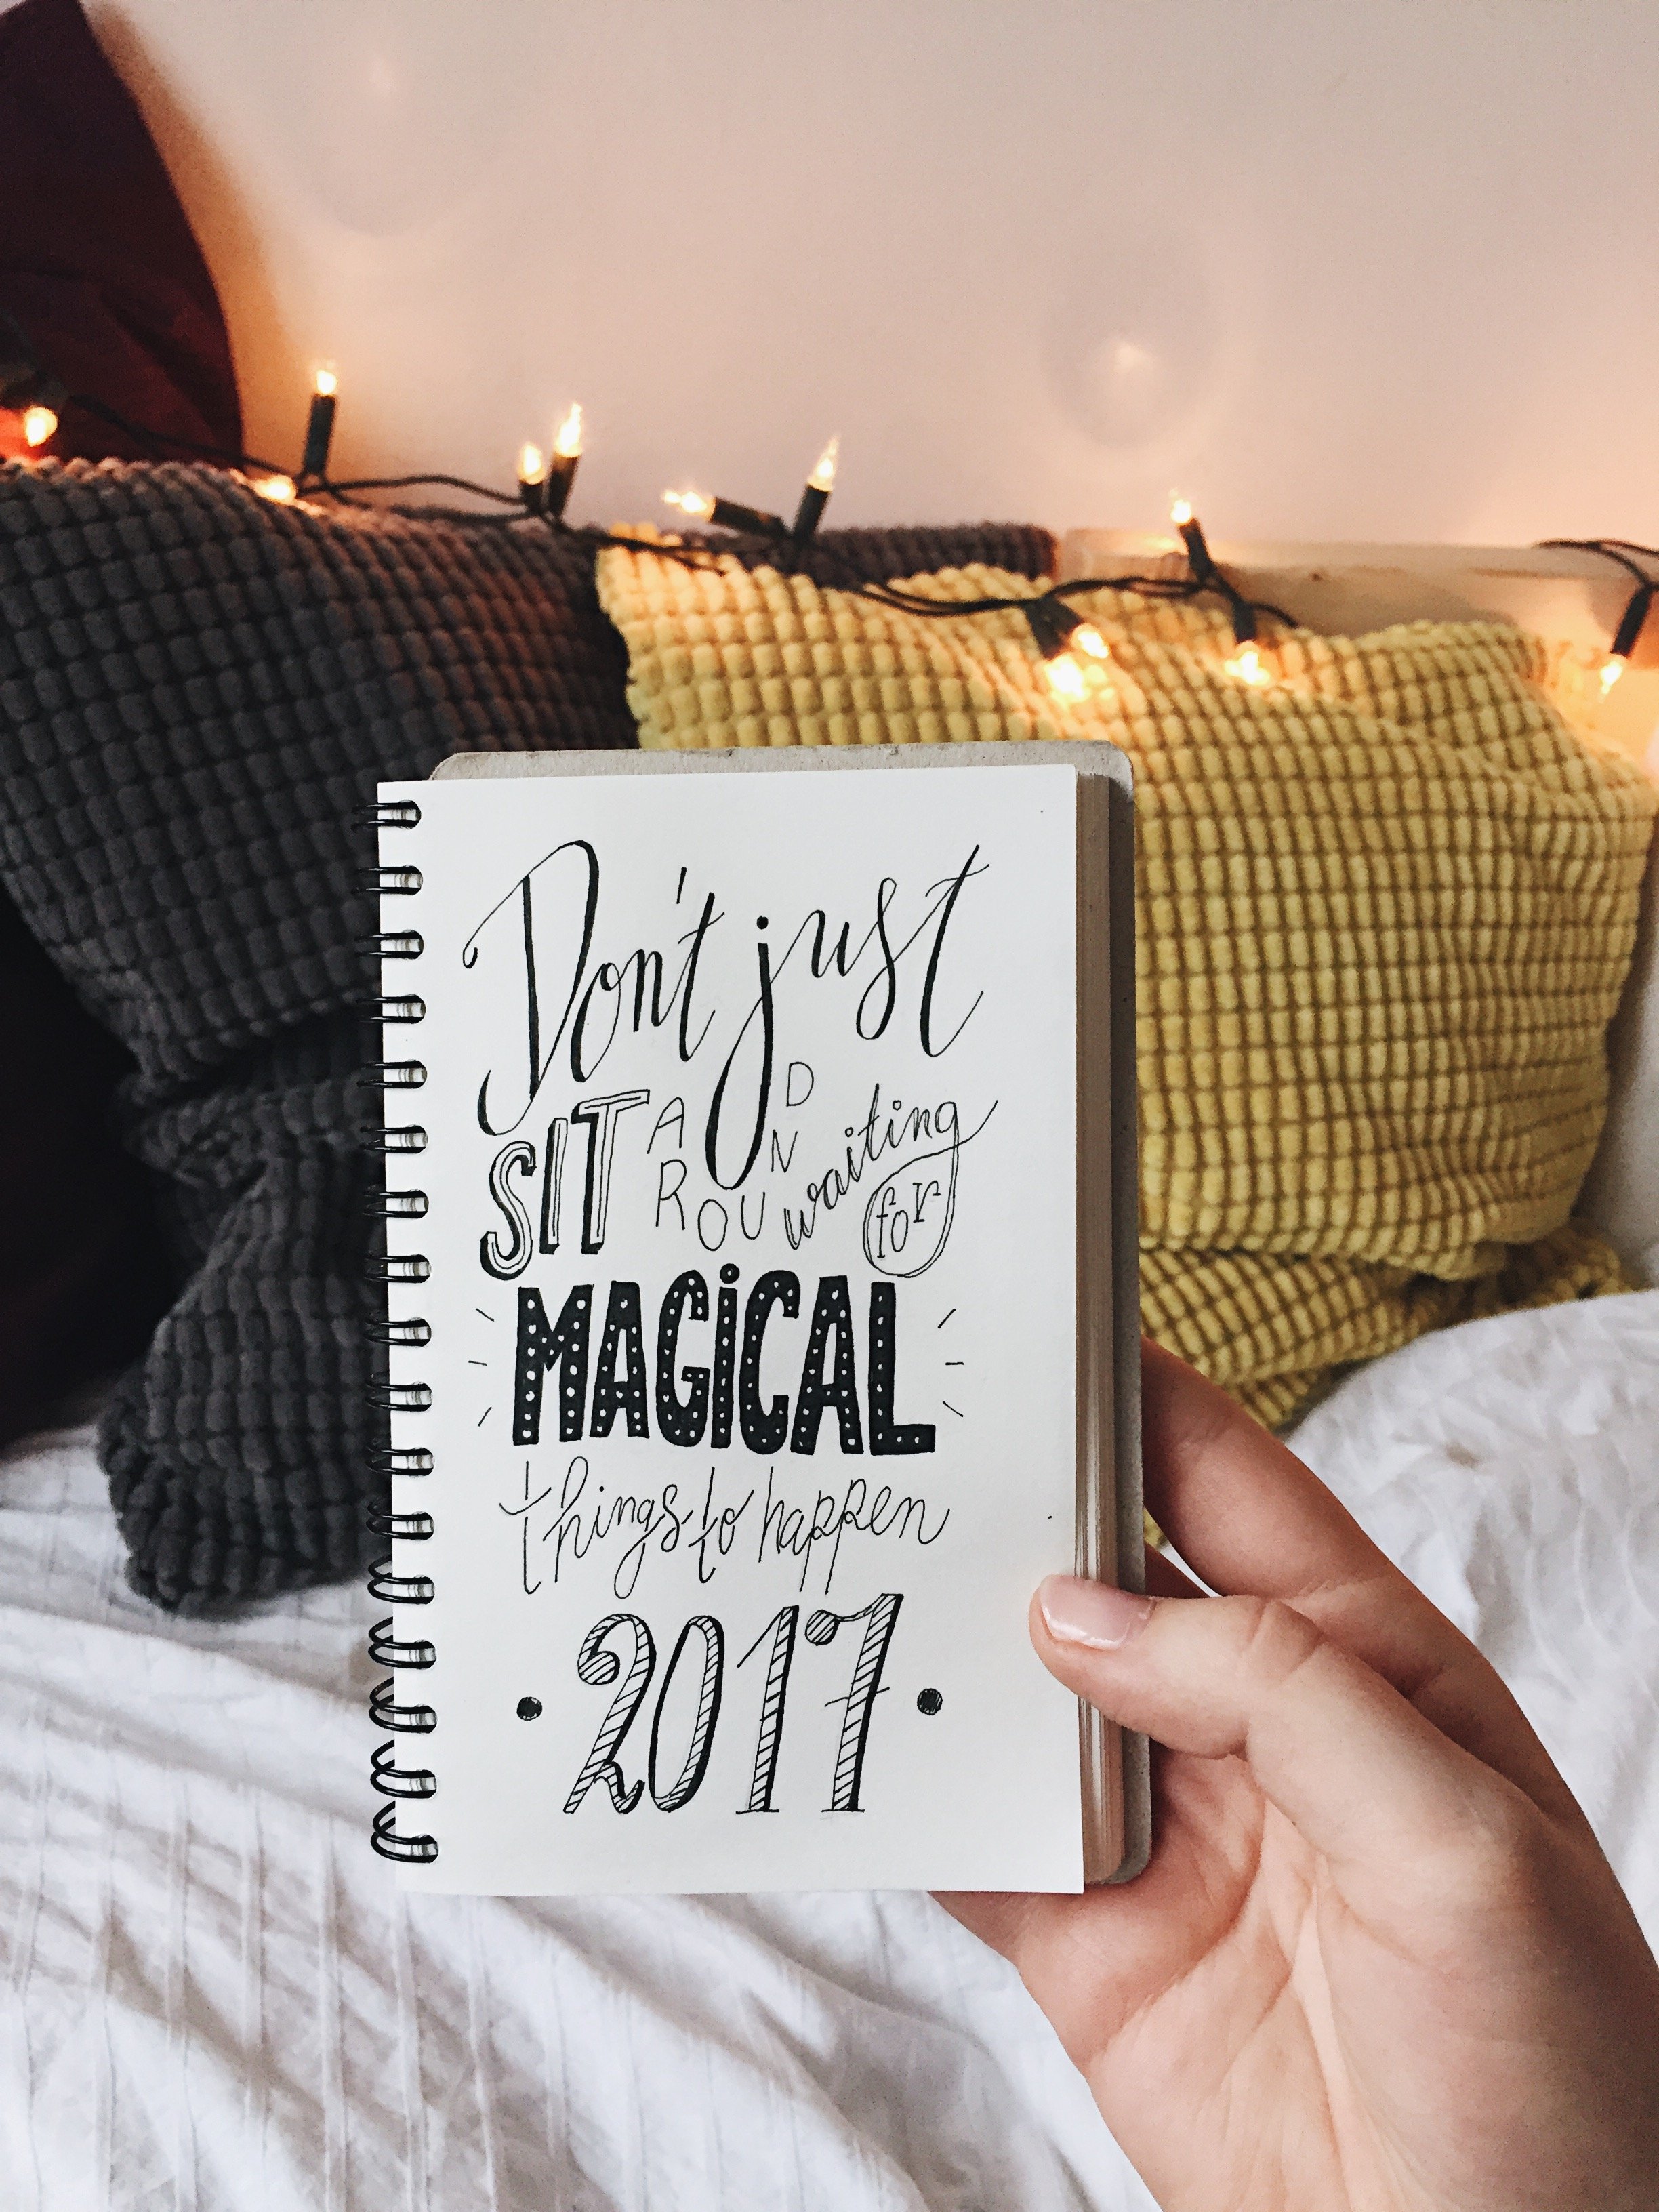 Don't just
SIT AROUND waiting
for
MAGiCAL
things to happen
2017